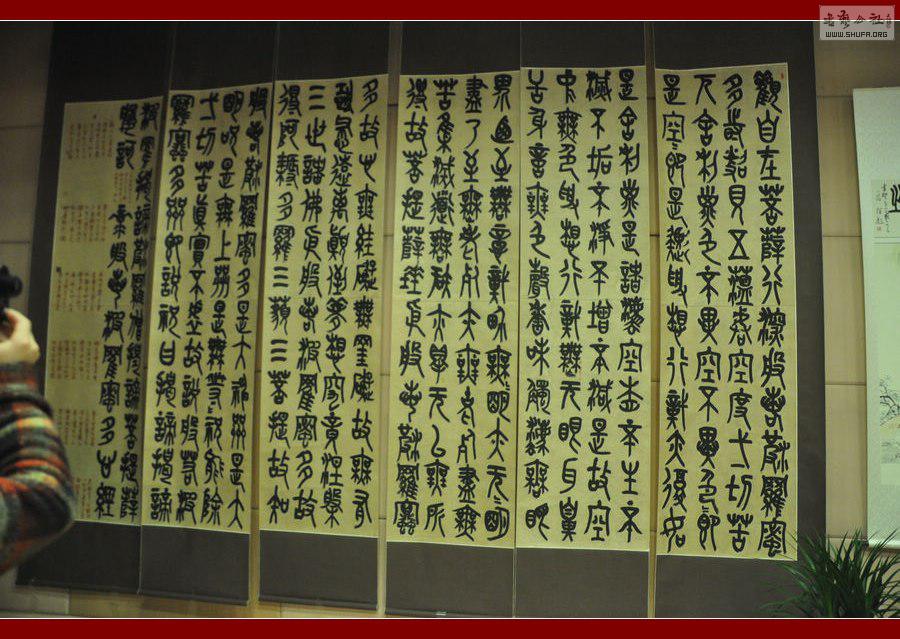 觀自在菩薩行深般若波羅蜜
多時照見五蘊皆空度一切苦
厄舍利子色不異空不異色即
是空即是色受想行識亦復如
是舍利子是諸法空相不生不
滅不垢不淨不增不減是故空
中無色無受想行識無眼耳鼻
舌身意無色聲香味觸法無眼
界乃至無意識界無無明亦无無明
盡乃至無老死亦無老死盡無
苦集滅道無智亦無得以無所
得故菩提薩埵依般若波羅蜜
多故心無罣礙無罣礙故無有
恐怖遠離顛倒夢想究竟涅槃
三世諸佛依般若波羅蜜多故
得阿耨多羅三藐三菩提故知
般若波羅蜜多是大神咒是大
明咒是無上咒是無等等咒能除
一切苦真實不虛故說般若波
羅蜜多咒即說咒曰揭諦揭諦
波羅揭諦波羅僧揭諦菩提薩
婆訶 般若波羅蜜多心經
书法公社
WWW.SHUFA.ORG